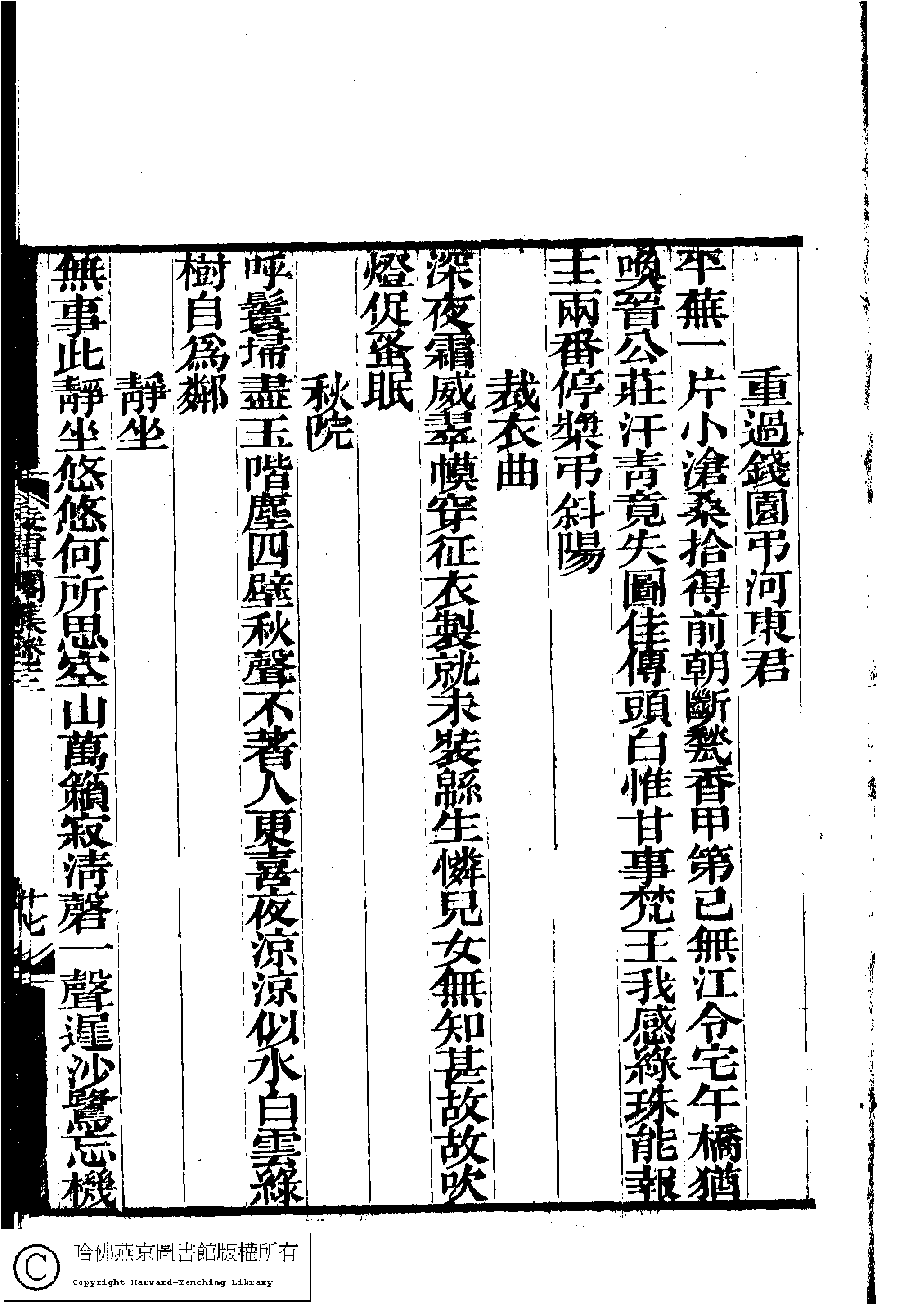 重過錢園弔河東君
平蕪一片小滄桑拾得前朝斷甃香甲第已無江令宅午橋猶
喚晉公莊汗青竟失圖佳傳頭白惟甘事梵王我感綠珠能報
主兩番停槳弔斜陽
裁衣曲
深夜霜威翠幙穿征衣製就未裝緜生憐兒女無知甚故故吹
燈促蚤眠
秋院
呼鬟掃盡玉階塵四壁秋聲不著人更喜夜涼涼似水白雲綠
樹自為鄰
靜坐
無事此靜坐悠悠何所思空山萬籟寂清磬一聲遲沙鷺忘機
集卷
廿七
哈佛燕京圖書館版權所有
Copyright Harvard-Yenching Library